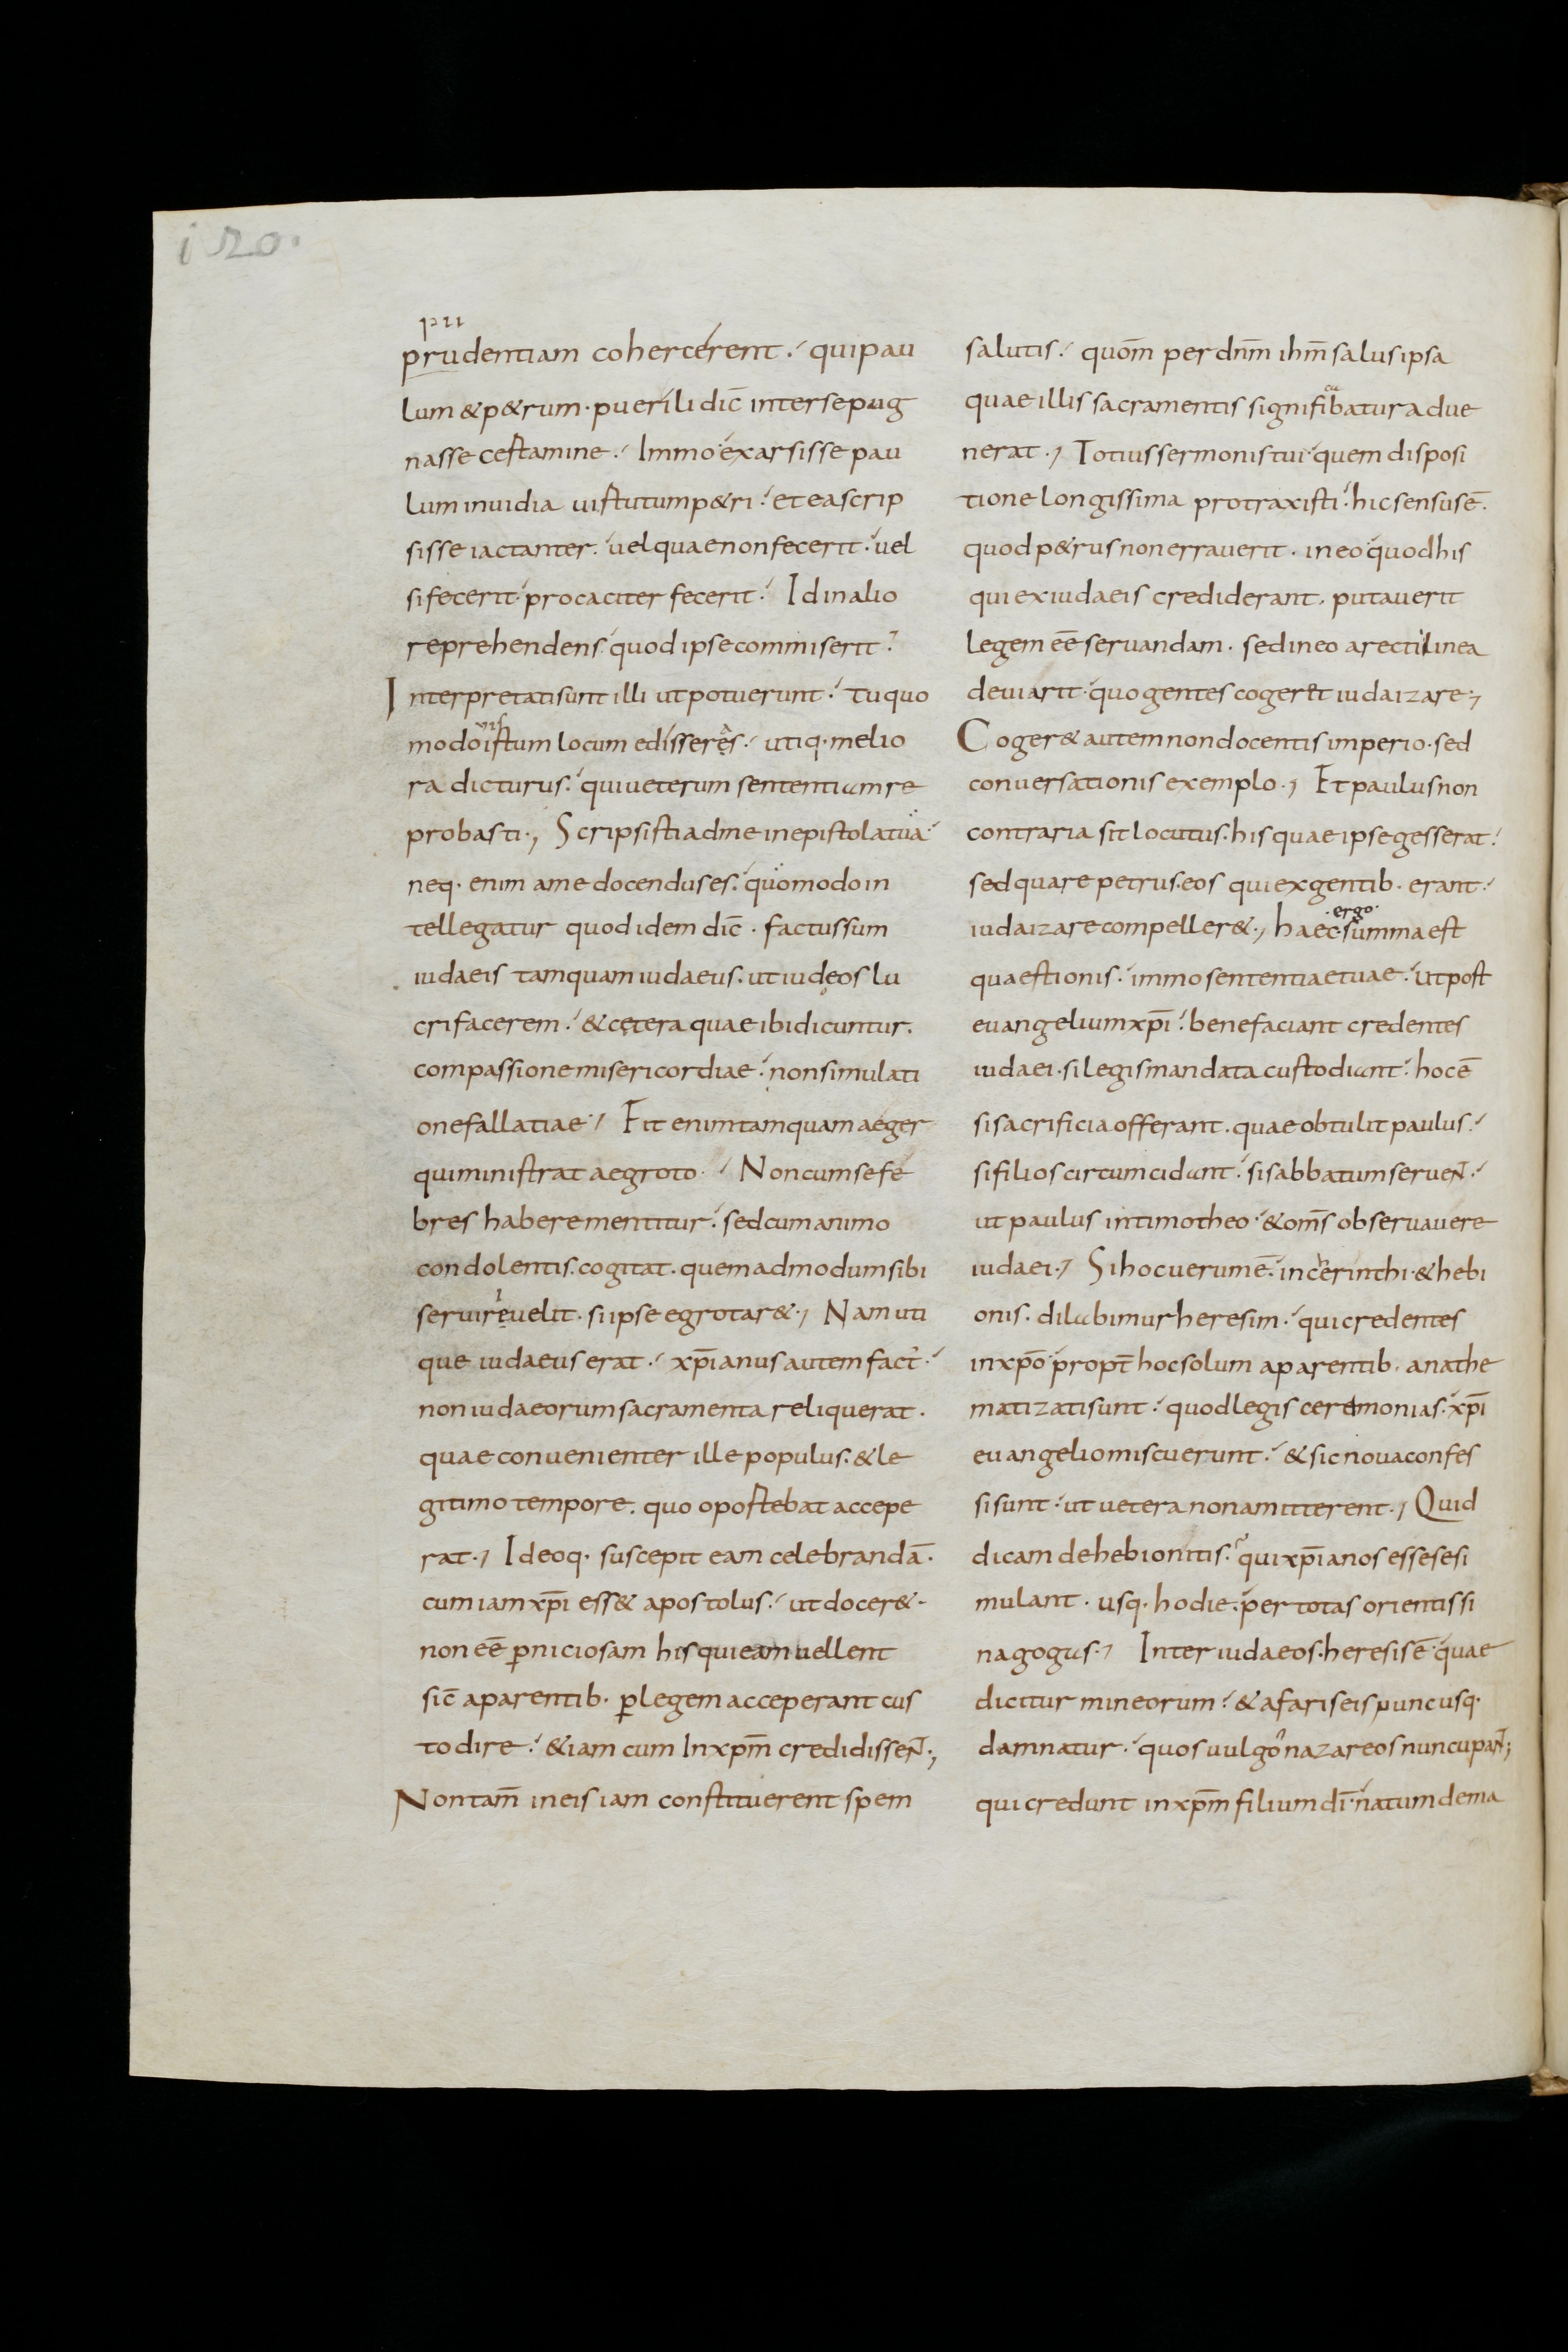 i20.
pu
prudentiam cohercerent. quipau
lum&p&rum. puerili dic̄ intersepug
nasse certamine. Immo exarsisse pau
luminuidia uirtutump&ri. Et eascrip
sisse iactanter. uelquaenonfecerit. uel
sifecerit procaciter fecerit. Id inalio
reprehendens quodipsecommiserit.
Interpretatisunt illi utpotuerunt. Tuquo
modo istum locum edisseres. utiq. melio
ra dicturus. quiueterum sententiamre
probasti., Scripsistiadme inepistolatua.
neq. enim ame docenduses. quomodoin
tellegatur quodidem dic̄. factussum
iudaeis tamquamiudaeus. utiudęoslu
crifacerem. &cetera quae ibidicuntur.
compassionemisericordiae. nonsimulati
onefallatiae. Fit enimtamquamaeger
quiministrat aegroto. Noncumsefe
bres haberementitur. sedcumanimo
condolentis. cogitat. quemadmodumsibi
seruirẹuelit. siipse egrotar&., Namuti
que iudaeuserat. xp̄ianusautemfact.
noniudaeorumsacramenta reliquerat.
quaeconuenienter ille populus. &le
gitimo tempore. quo oportebat accepe
rat., Ideoq. suscepit eam celebrandā.
cumiamxp̄i ess& apostolus. utdocer&.
non eē p̄niciosam hisquieamuellent
sic̄ aparentib. p̄legemacceperantcus
todire. &iam cum Inxp̄m credidisseNT.,
Nontam̄ ineis iam constituerent spem
salutis. quom̄ per dn̄m ihm̄salusipsa
quaeillis sacramentis signifibaturadue
nerat., Totiussermonistui quem disposi
tione longissima protraxisti. hicsensusē.
quodp&rusnonerrauerit. ineo quodhis
qui exiudaeis crediderant. putauerit
legem eē seruandam. sedineo arectilinea
deuiarit. quogentescogeret iudaizare.,
Coger& autemnondocentisimperio. sed
conuersationisexemplo., Et paulusnon
contraria sitlocutus. his quaeipsegesserat.
sedquare petrus. eos quiexgentib. erant.
iudaizarecompeller&., haec.summaest
.ergo.
quaestionis. immosententiaetuae. utpost
euangeliumxp̄i. benefaciant credentes
iudaei. silegismandatacustodiant. hocē
sisacrificiaofferant. quaeobtulit paulus.
sifilioscircumcidant. sisabbatumserueNT.
ut paulus intimotheo. &om̄s obseruauere
iudaei., Sihocuerumē. incerinthi. &hebi
onis. dilabimurheresim. quicredentes
inxp̄o propt̄ hocsolum aparentib. anathe
matizatisunt. quodlegis ceremonias. xp̄i
euangeliomiscuerunt. &sicnouaconfes
sisunt. ut ueteranonamitterent., Quid
dicam dehebionitis. quixp̄ianosessesesi
mulant. usq. hodie. per totas orientissi
nagogas., Inter iudaeos. heresisē quae
dicitur mineorum. &afariseisnuncusq.
damnatur. quosuulgo nazareosnuncupaNT;
quicredunt inxp̄m filiumdī natumdema